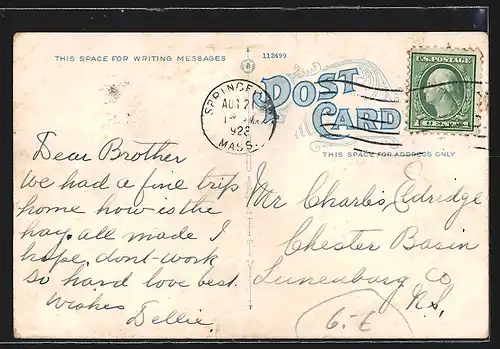 THIS SPACE FOR WRITING MESSAGES
112499
POST CARD
SPRINGFIELD
AUG 21
1923
MASS.
U.S. POSTAGE
THIS SPACE FOR ADDRESS ONLY
Dear Brother
we had a fine trip
home how is the
hay. all made I
hope. dont work
so hard love best
wishes
Dellie.
Mr Charlis Eldridge
Chester Basin
Lunenburg Co
N.S.